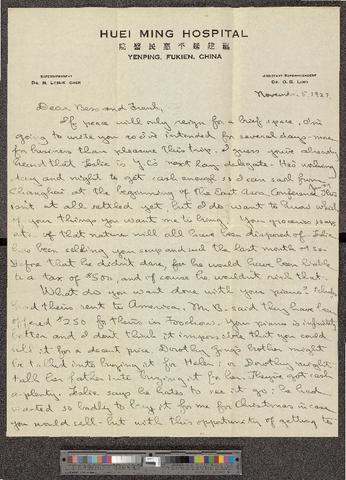 HUEI MING HOSPITAL
福建延平惠民醫院
YENPING, FUKIEN, CHINA
SUPERINTENDENT
ASSISTANT SUPERINTENDENT
DR. O. G. LINO
November 5, 1927
Dear Bess and Frank,
If peace will only reign for a brief space, I'm
going to write you as I've intended for several days - more
for business than pleasure this trip. I guess you've already
heard that Leslie is Y. C.'s lay delegate. He's working
day and night to get cash enough so I can sail from
Changhai at the beginning of the East Asia Conference. This
isn't at all settled yet but I do want to know what
of your things you want me to bring. Your groceries
of that nature will all have been disposed of. Leslie
has been selling your soup and the last month or so.
Before that he didn't dare, for he would have been liable
to a tax of $500 and of course he wouldn't risk that.
What do you want done with your piano?
had theirs sent to America. Mr. B. said they have been
offered $250 for theirs in Foochow. Your piano is infinitely
better and I don't think it impossible that you could
sell it for a decent price. Dorothy Jung's brother might
be talked into buying it for Helen; or Dorothy might
talk her father into buying it for her. They've got cash
a-plenty. Leslie says he hates to see it go; he had
wanted so badly to buy it for me for Christmas in case
you would sell - but with this opportunity of getting to